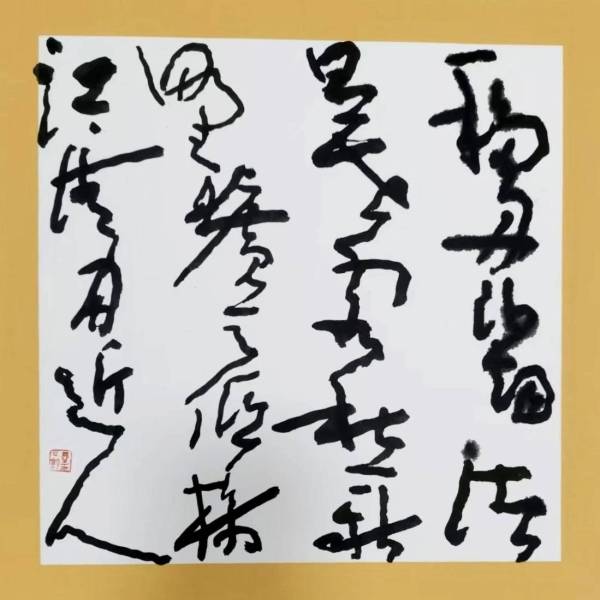 移舟泊烟渚
日暮客愁新
野曠天低樹
江清月近人